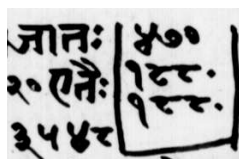 जातः ४७०
२० एतैः १८८०
३५४८ १८८०